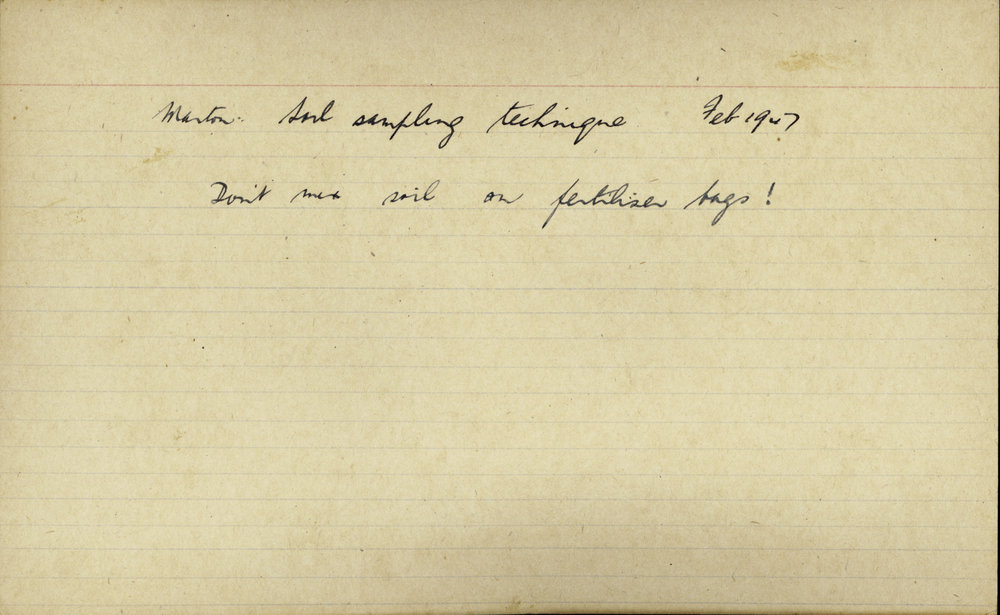 Marton. Soil sampling technique Feb 1947
Don't mix soil on fertiliser bags!